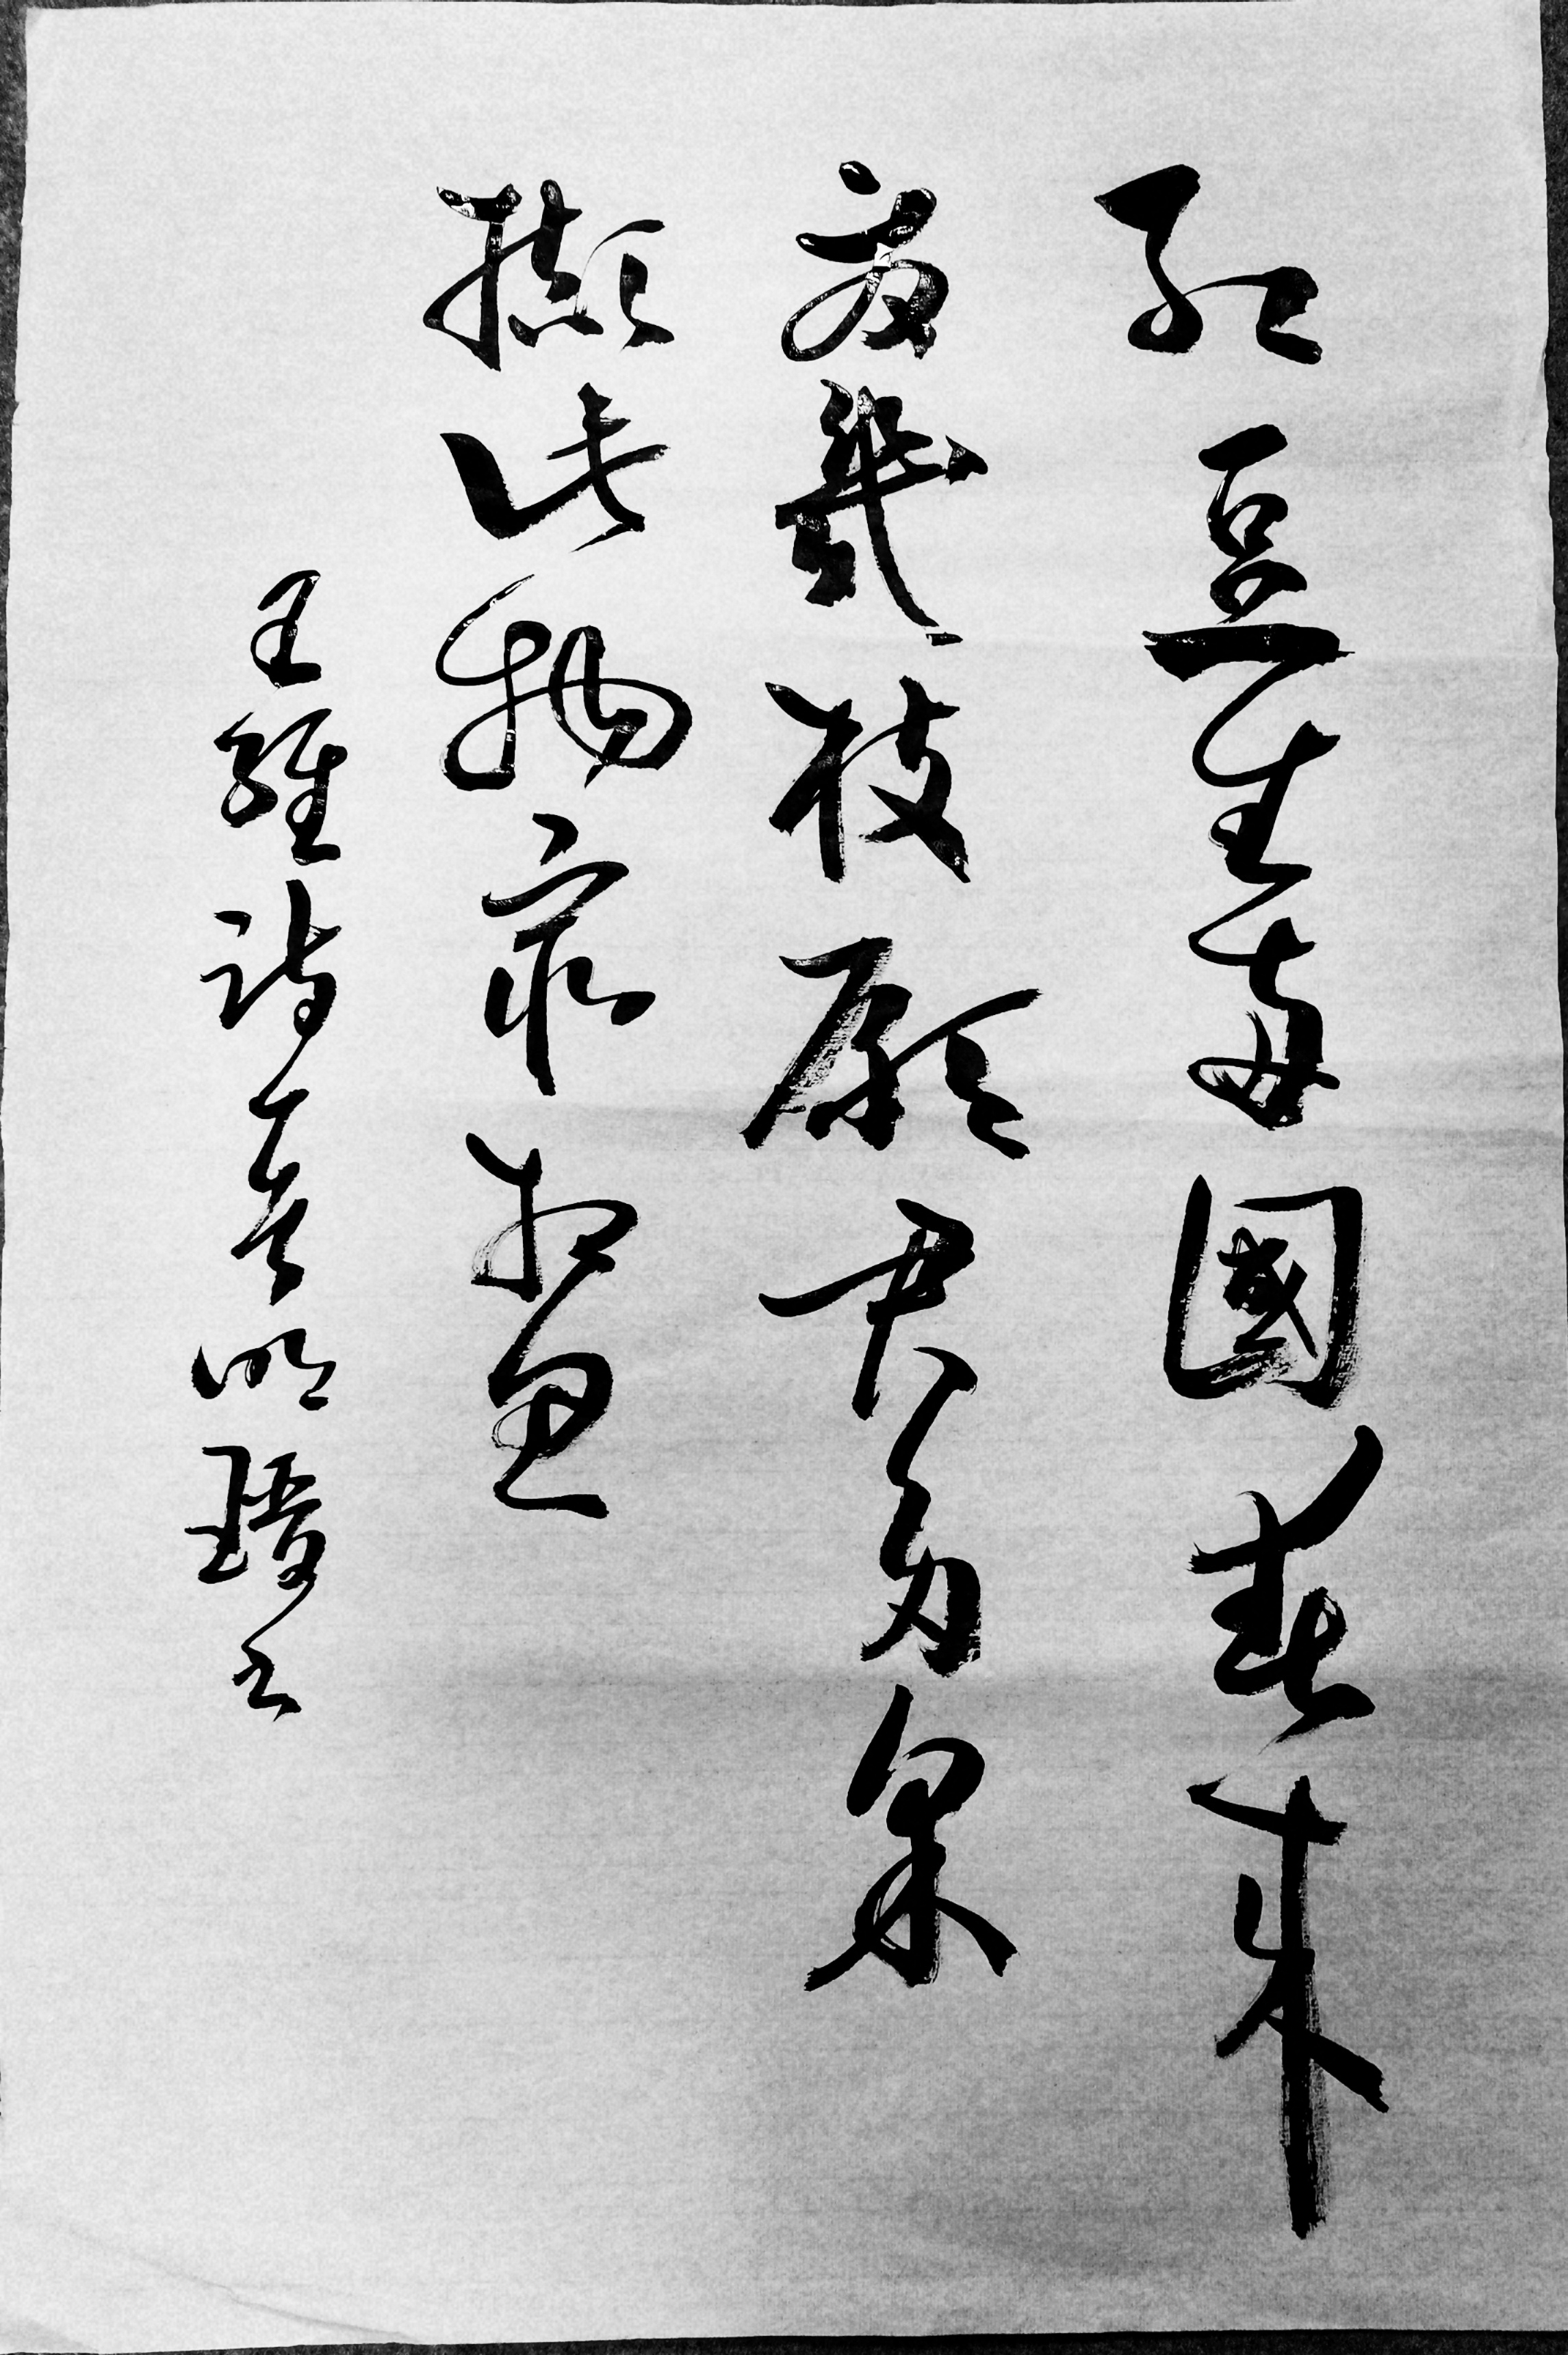 紅豆生南國春來
發幾枝願君多采
擷此物最相思
王維詩